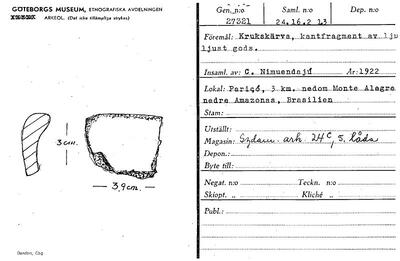 GÖTEBORGS MUSEUM, ETNOGRAFISKA AVDELNINGEN
ARKEOL. (Det icke tillämpliga strykes)
3 cm.
3,9 cm.
Gen. n:o
27321
Saml. n:o
24.16.2 L3
Dep. n:o
Föremål: Krukskärva, kantfragment av lju
ljust gods.
Insaml. av: C. Nimuendajú År: 1922
Lokal: Pariçó, 3 km. nedom Monte Alegre
nedre Amazonas, Brasilien
Stam:
Utställt:
Magasin: Sydam. ark. 24C, 5. låda
Depon.:
Byte till:
Negat. n:o Teckn. n:o
Skiopt. „ Kliché „
Publ.: